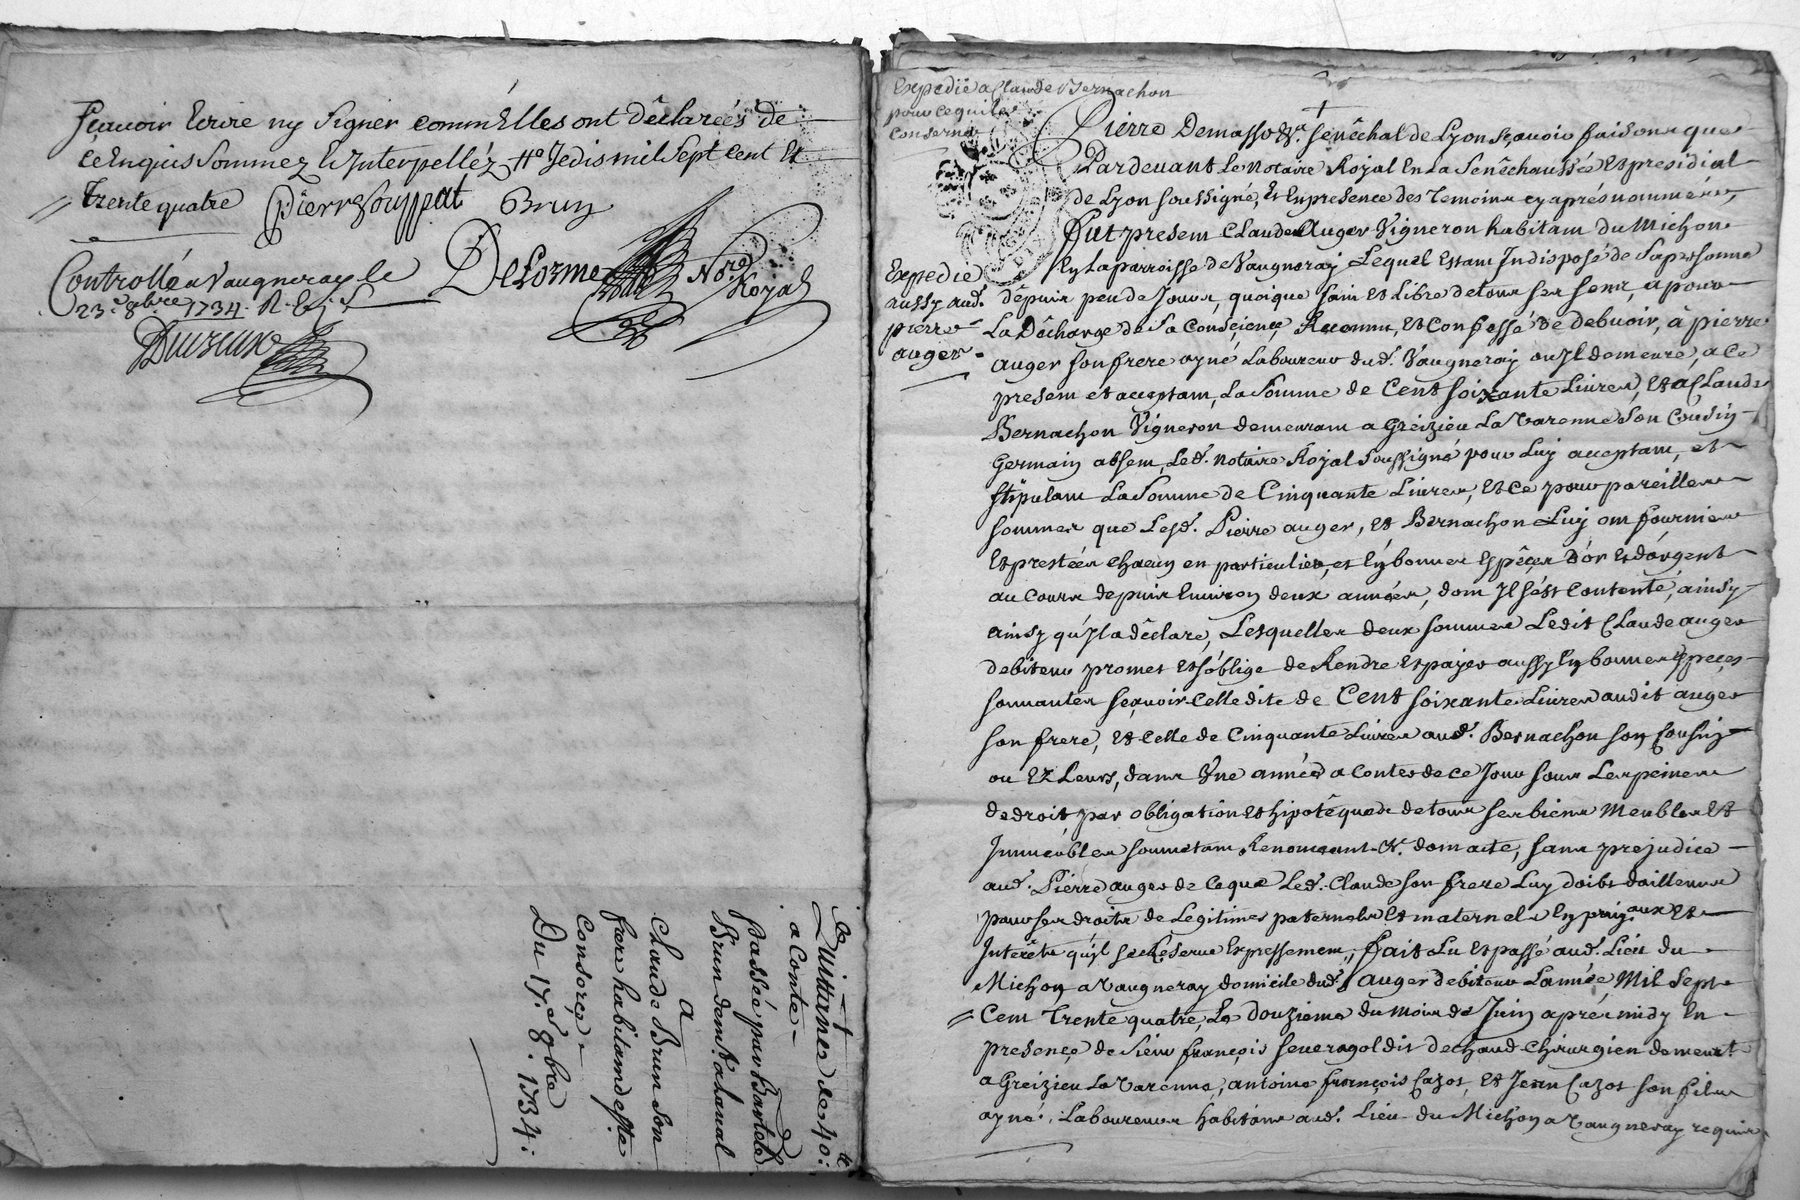 sçavoir Ecrire ny Signer comm'Elles ont dêclareés de
ce Enquis Sommez & Interpelléz Jedis mil Sept Cent Et
trente quatre Pierre Souppat Brun
DeLorme Nore Royal
Controllé a Vaugneray le
23e 8bre 1734. R.
Quittance de 40:
a Conte
passée par
Brun dem
a
Claude Brun Son
frere habitant
Consorce
Du 17e 8bre 1734:
Expedié a Claude Bernachon
pour ce qui le
Conserne
Pierre Demasso &a. Senêchal de Lyon sçavoir faisons que
Pardevant Le Notaire Royal En La Senêchaussée et presidial
de Lyon soussigné, Et En presence des temoins cy aprés nommés,
Fut present Claude Auger Vigneron habitant du Michon
En La parroisse de Vaugneray Lequel Estant Indisposé de Sa personne
Expedie
aussy aud.
pierre
auger
depuis peu de Jours, quoique sain et Libre de tous ses sens, a pour
La Dêcharge de Sa Consçience Reconnu, et Confessé de debvoir, â pierre
Auger son frere ayné Laboureur dud. Vaugneray ou Jl demeure, a ce
present et acceptant, La Somme de Cent soixante Livres, Et a Claude
Bernachon Vigneron demeurant a Greizieu La Varenne Son Cousin
Germain absent, Led. notaire Royal soussigné pour Luy acceptant, et
stipulant La Somme de Cinquante Livres, Et Ce pour pareilles
sommes que Lesd. Pierre auger, et Bernachon Luy ont fournies
Et prestées chacun en particulier, et En bonnes Espêces d'or Et d'argent
au Cours depuis Environ deux années, dont Jl s'est Contenté, ainsy
ainsy qu'Jl a dêclaré, Lesquelles deux sommes Ledit Claude auger
debiteur promet Et s'oblige de Rendre Et payer aussy En bonnes Especes
sonnantes sçavoir Celle dite de Cent soixante Livres audit auger
son frere, et Celle de Cinquante Livres aud. Bernachon son Cousin
ou Ez Leurs, dans Vne année a Conter de ce Jour sous Les peines
de droit par obligation et hipotêque de tous ses biens Meubles Et
Immeubles soumettant Renonceant &a. dont acte, sans prejudice
aud. Pierre auger de Ce que Led. Claude son frere Luy doibt dailleurs
pour ses droits de Legitimes paternels Et maternels En principaux Et
Interêts qu'jl se Reserve Expressement, fait Lu Et passé aud. Lieu du
Michon a Vaugneray domicile dud. auger debiteur Lannée Mil Sept
Cent trente quatre, Le douzieme du mois de Juin aprés midy En
presence de Sieur françois severagol dit dechaud Chirurgien demeurt
a Greizieu La Varenne, antoine françois Cazot, Et Jean Cazot son fils
ayné, Laboureurs habitans aud. Lieu du Michon a Vaugneray requis